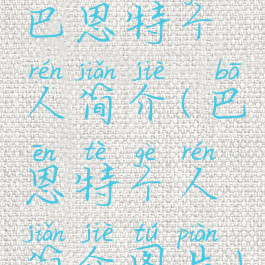 巴恩特个
rén jiǎn jiè bā
人简介(巴
ēn tè gè rén
恩特个人
jiǎn jiè tú piàn
简介图片)